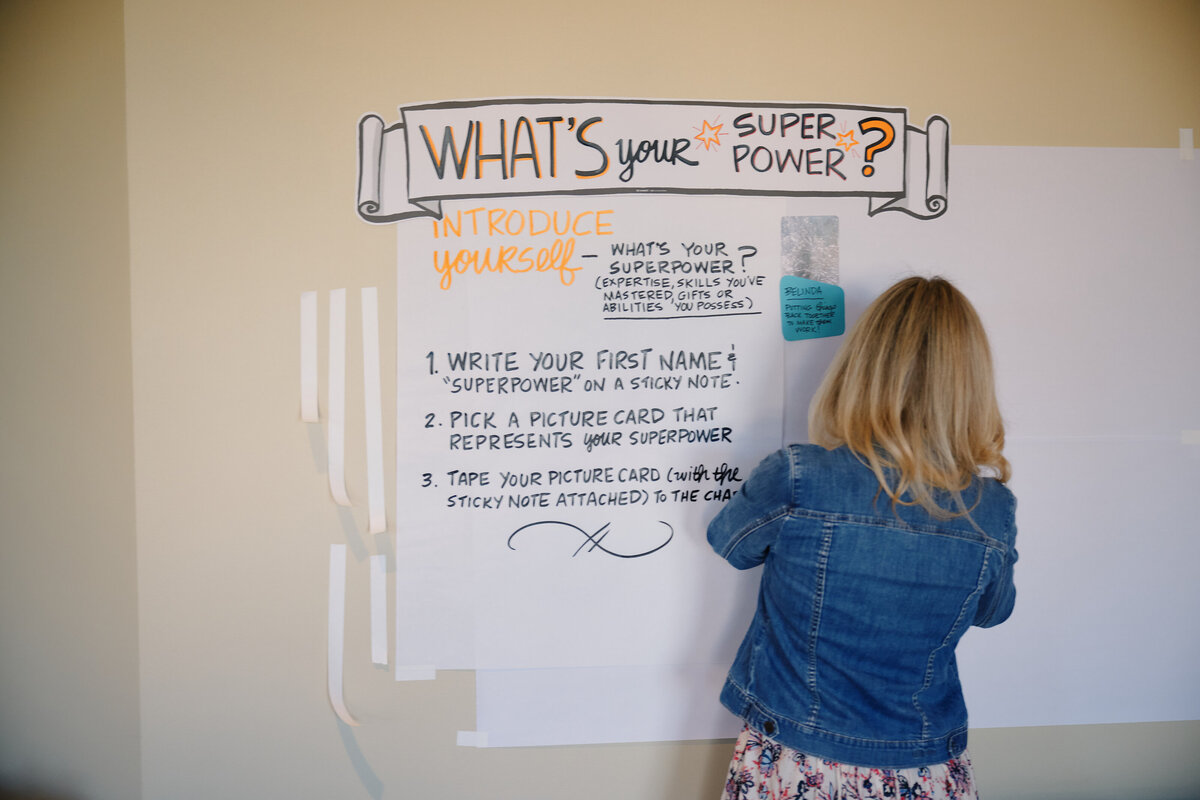 WHAT'S your SUPER
POWER?
INTRODUCE
yourself — WHAT'S YOUR
SUPERPOWER?
(EXPERTISE, SKILLS YOU'VE
MASTERED, GIFTS OR
ABILITIES YOU POSSESS)
1. WRITE YOUR FIRST NAME &
"SUPERPOWER" ON A STICKY NOTE.
2. PICK A PICTURE CARD THAT
REPRESENTS your SUPERPOWER
3. TAPE YOUR PICTURE CARD (with the
STICKY NOTE ATTACHED) TO THE
BELINDA
PUTTING things
BACK TOGETHER
TO MAKE THEM
WORK!